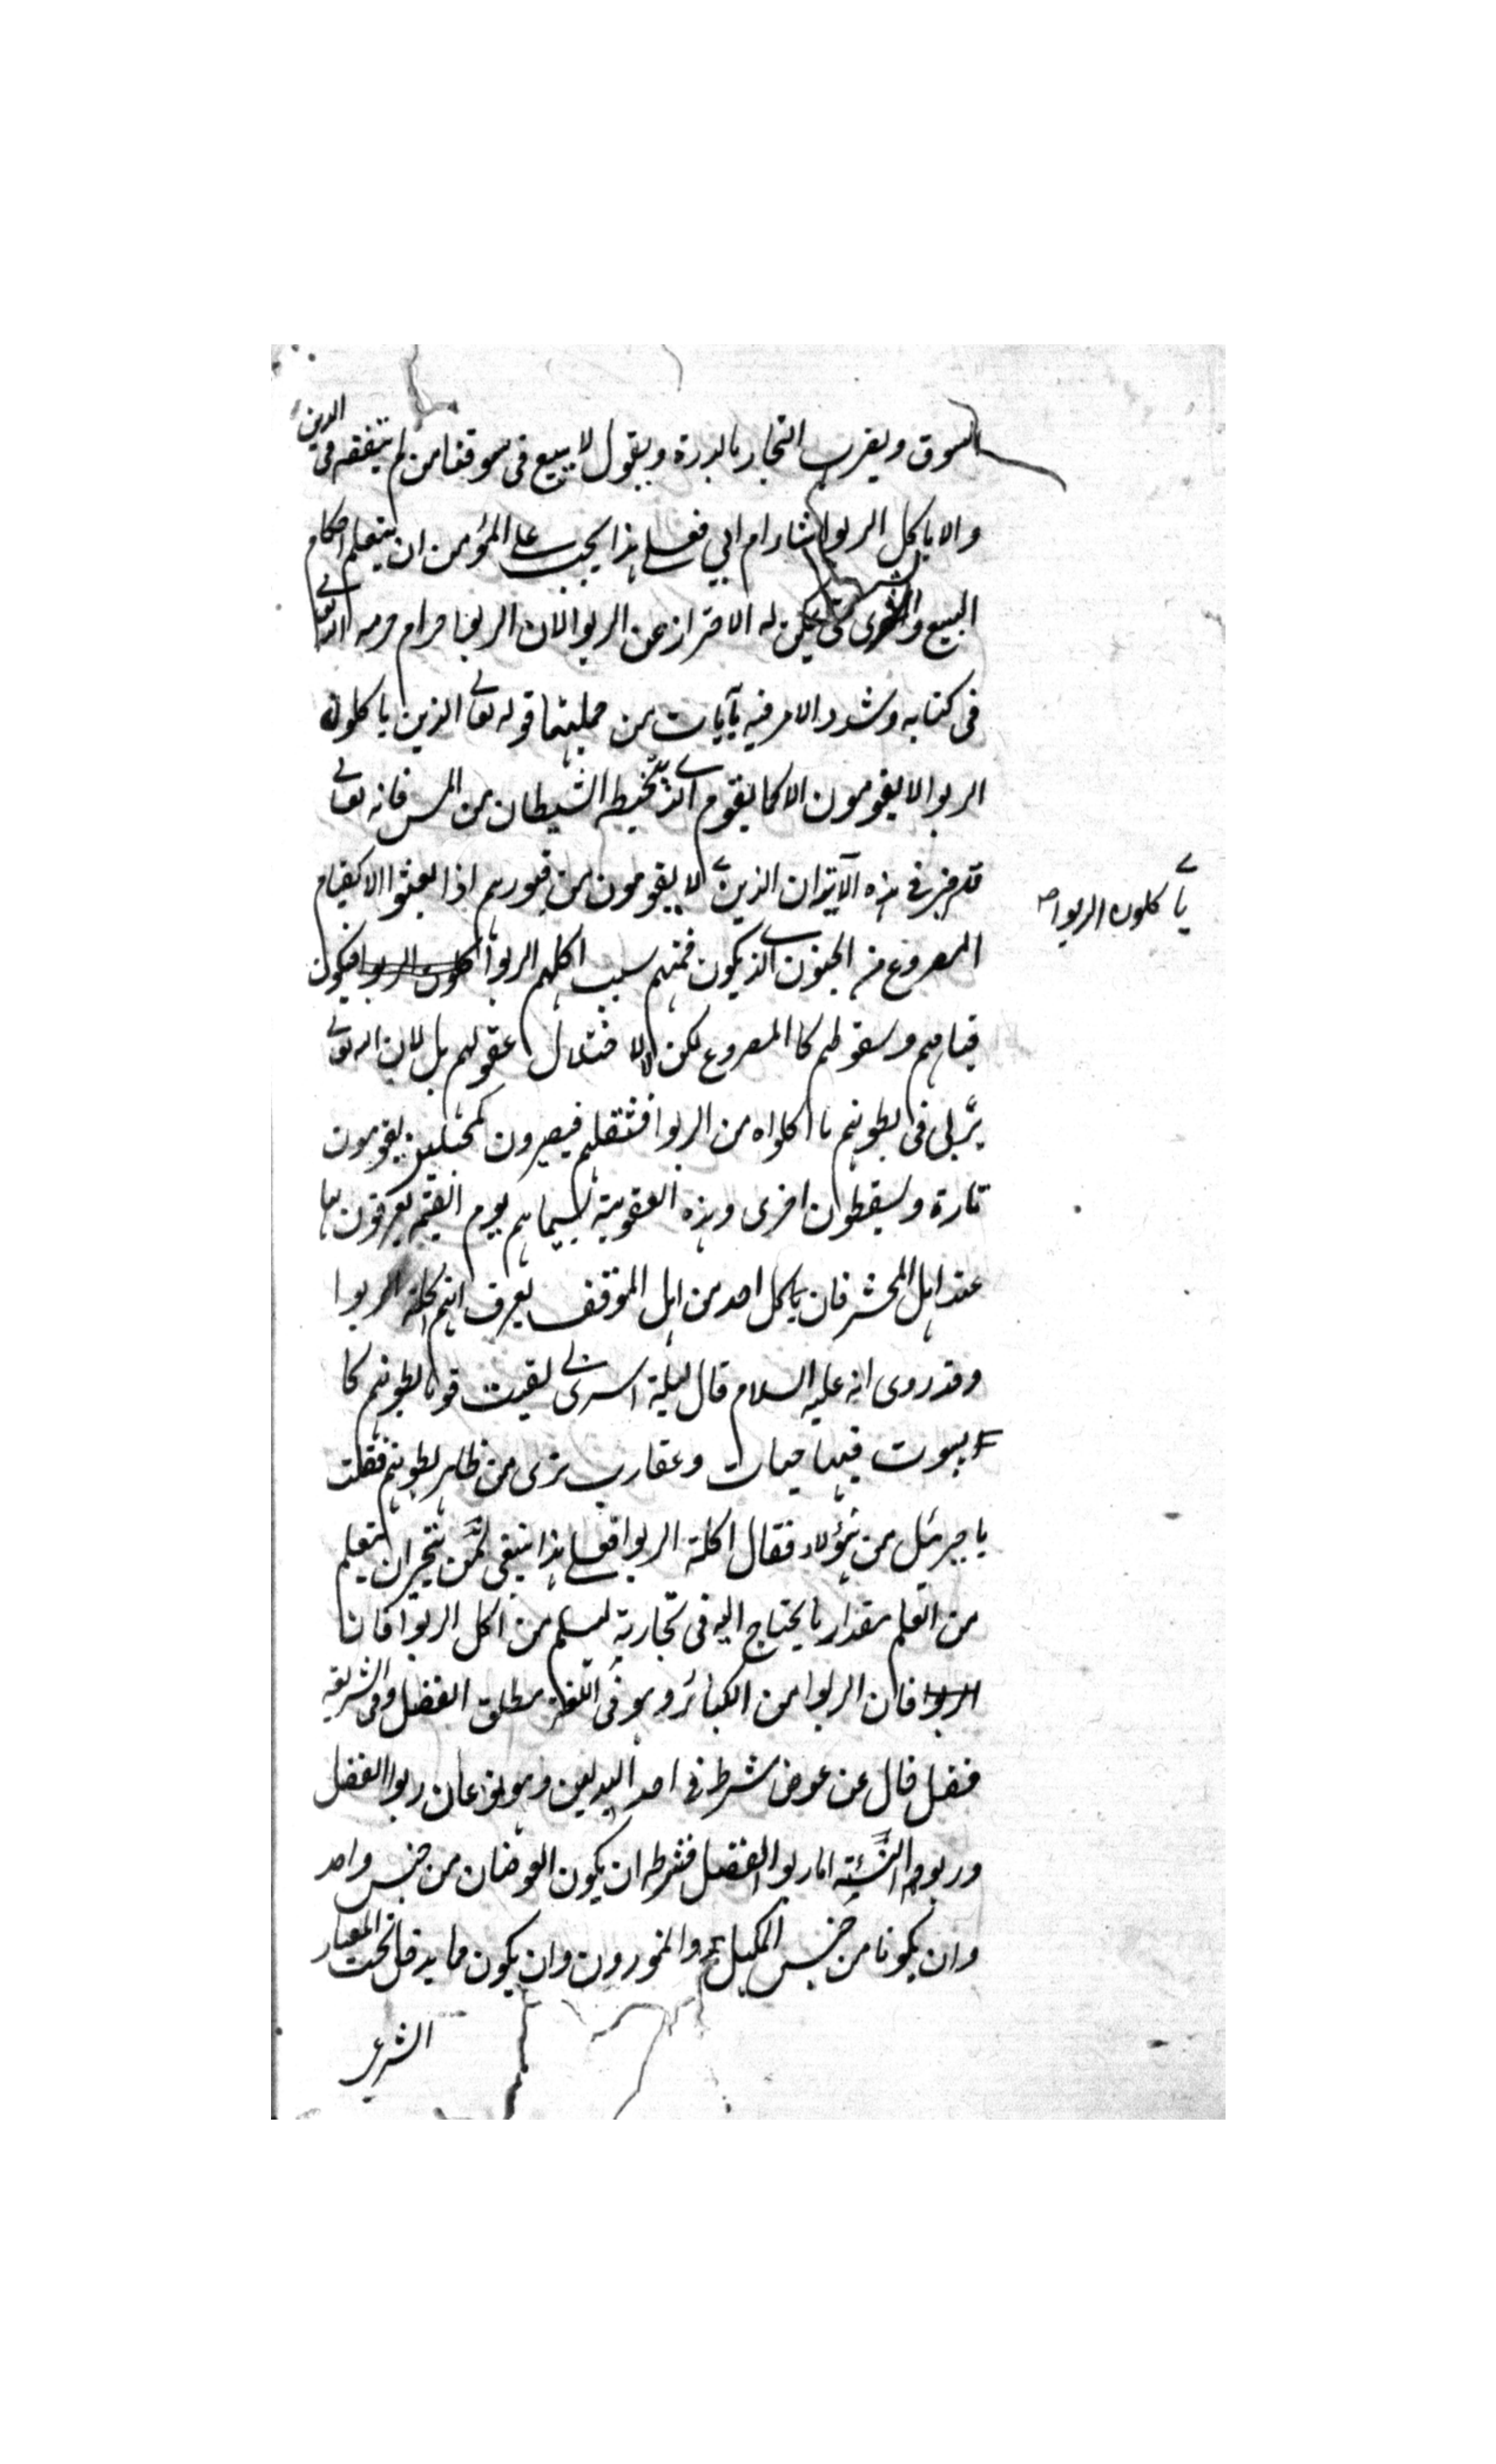 السوق ويضرب التجار بالدرة ويقول لا يبيع فى سوقنا من لم يتفقه فى الدين
والا ياكل الربوا شاء ام ابى فعلى هذا يجب على المؤمن ان يتعلم احكام
البيع والشرى حتى يمكن له الاحتراز عن الربوا لان الربوا حرام حرمه الله تعالى
فى كتابه وشدد الامر فيه بآيات من جملتها قوله تعالى الذين ياكلون
الربوا لا يقومون الا كما يقوم الذى يتخبطه الشيطان من المس فانه تعالى
قد اخبر فى هذه الآية ان الذين لا يقومون من قبورهم اذا بعثوا الا كقيام
يأكلون الربوا صح
المصروع من الجنون الذى يكون فمنهم سبب اكلهم الربوا اكلون الربوا فيكون
قيامهم وسقوطهم كالمصروع لكن لا لاختلال عقولهم بل لان الله تعالى
يربى فى بطونهم ما اكلواه من الربوا فتثقلهم فيصيرون كمخبلين يقومون
تارة ويسقطون اخرى وهذه العقوبة لسيماهم يوم القيمة يعرفون بها
عند اهل المحشر فان كل احد من اهل الموقف يعرف انهم اكلة الربوا
وقد روى انه عليه السلام قال ليلة اسرى بى لقيت قوما بطونهم كا
لبيوت فيها حيات وعقارب ترى من ظاهر بطونهم فقلت
يا جبرئيل من هؤلاء فقال اكلة الربوا فعلى هذا ينبغى لمن يتجر ان يتعلم
من العلم مقدار ما يحتاج اليه فى تجارته ليسلم من اكل الربوا فان
الربوا فان الربوا من الكبائر وهو فى اللغة مطلق الفضل وفى الشريعة
فضل خال عن عوض شرط فى احد البدلين وهو نوعان ربوا الفضل
وربوا النسيئة اما ربوا الفضل فشرطه ان يكون العوضان من جنس واحد
وان يكونا من جنس المكيل والموزون وان يكون مما يدخل تحت المعيار
الشرعى